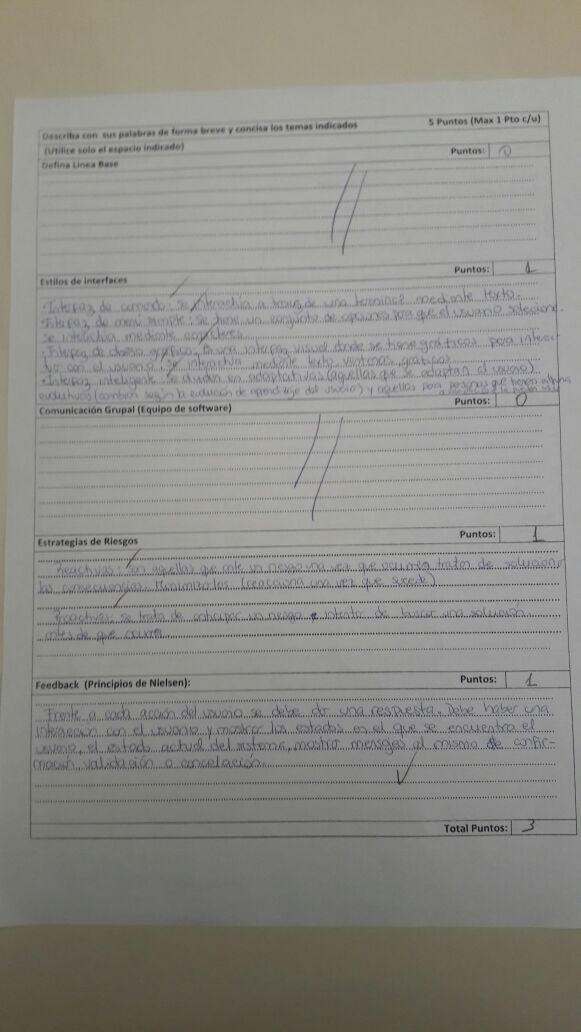 Describa con sus palabras de forma breve y concisa los temas indicados 5 Puntos (Max 1 Pto c/u)
(Utilice solo el espacio indicado) Puntos: 0
Defina Linea Base
Estilos de interfaces Puntos: 1
• Interfaz de comando: se interactúa a traves de una terminal mediante texto.
• Interfaz de menú simple: se tiene un conjunto de opciones para que el usuario seleccione.
se interactua mediante caracteres.
• Interfaz de diseño gráfico: Es una interfaz visual donde se tiene gráficos para interac-
tuar con el usuario. se interactua mediante texto, ventanas, gráficos.
• Interfaz inteligente: Se dividen en adaptativas (aquellas que se adaptan al usuario)
evolutivas (cambian según la evolución de aprendizaje del usuario) y aquellas para personas que tienen alguna
Comunicación Grupal (Equipo de software) Puntos: 0
Estrategias de Riesgos Puntos: 1
Reactivas: son aquellas que ante un riesgo una vez que ocurren tratan de solucionar
las consecuencias. Minimizarlos (reacciona una vez que sucede)
Proactivas: se trata de anticipar un riesgo e intentar de buscar una solución
antes de que ocurra.
Feedback (Principios de Nielsen): Puntos: 1
Frente a cada acción del usuario se debe dar una respuesta. Debe haber una
interacción con el usuario y mostrar los estados en el que se encuentra el
usuario, el estado actual del sistema, mostrar mensajes al mismo de confir-
mación, validación o cancelación.
Total Puntos: 3